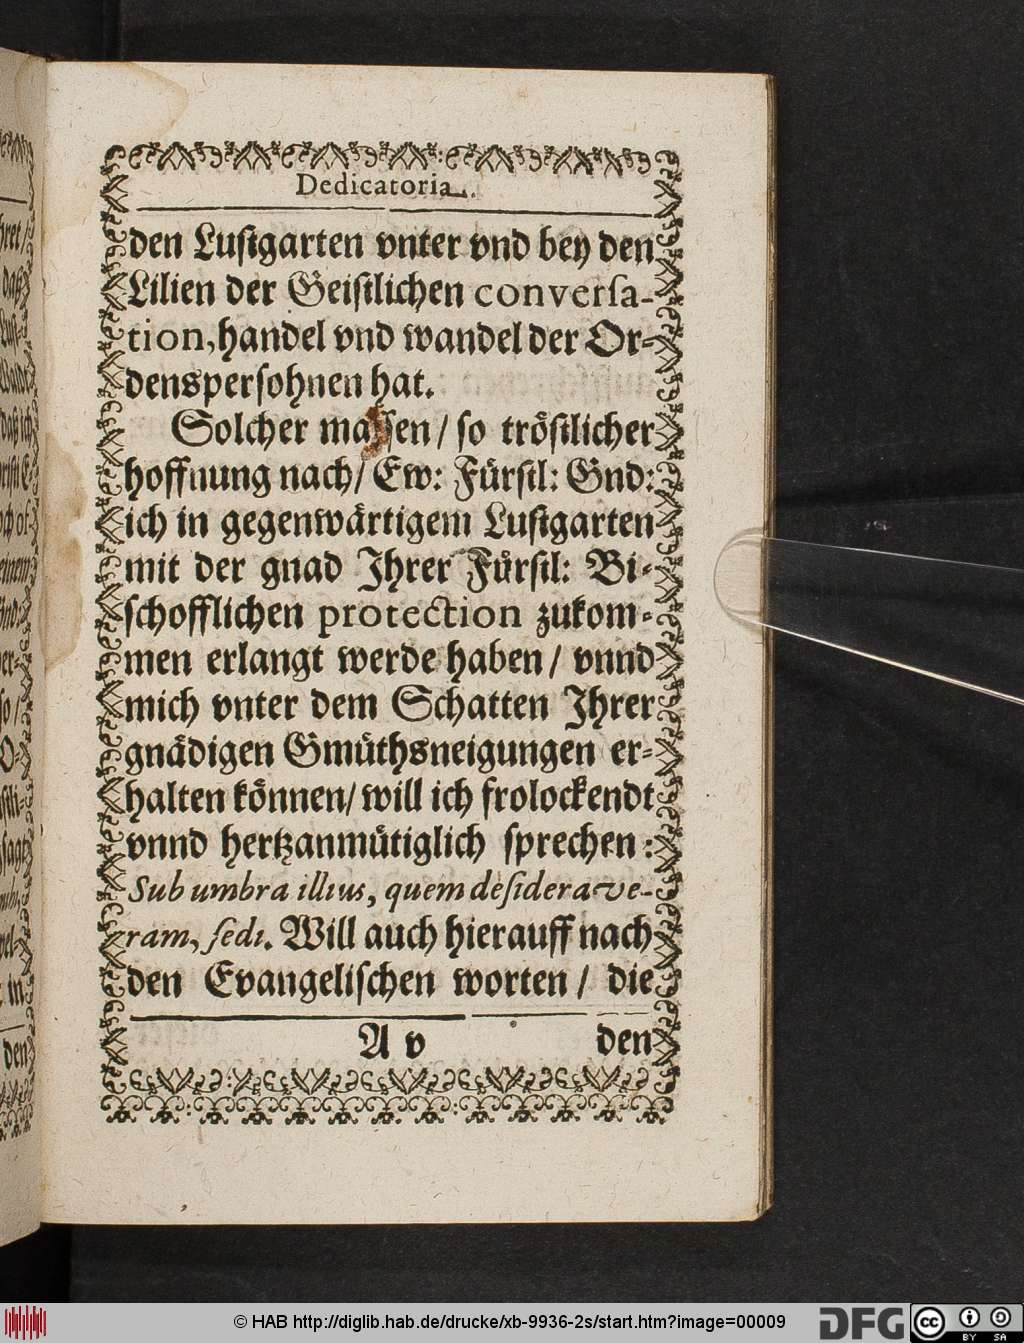 Dedicatoria.
den Luſtgarten vnter vnd bey den
Lilien der Geiſtlichen converſa-
tion, handel vnd wandel der Or-
denspersohnen hat.
Solcher maſſen / ſo tröſtlicher
hoffnung nach / Ew: Fürſtl: Gnd:
ich in gegenwärtigem Luſtgarten
mit der gnad Ihrer Fürſtl: Bi-
ſchofflichen protection zukom-
men erlangt werde haben / vnnd
mich vnter dem Schatten Ihrer
gnädigen Gmüthsneigungen er-
halten können / will ich frolockendt
vnnd hertzanmütiglich ſprechen:
Sub umbra illius, quem deſiderave-
ram, ſedi. Will auch hierauff nach
den Evangeliſchen worten / die
A v
den
hret /
daß
Luſt-
daß ich
einem
er-
ſo /
O-
ſagt
in
den
© HAB http://diglib.hab.de/drucke/xb-9936-2s/start.htm?image=00009
DFG
cc
BY SA